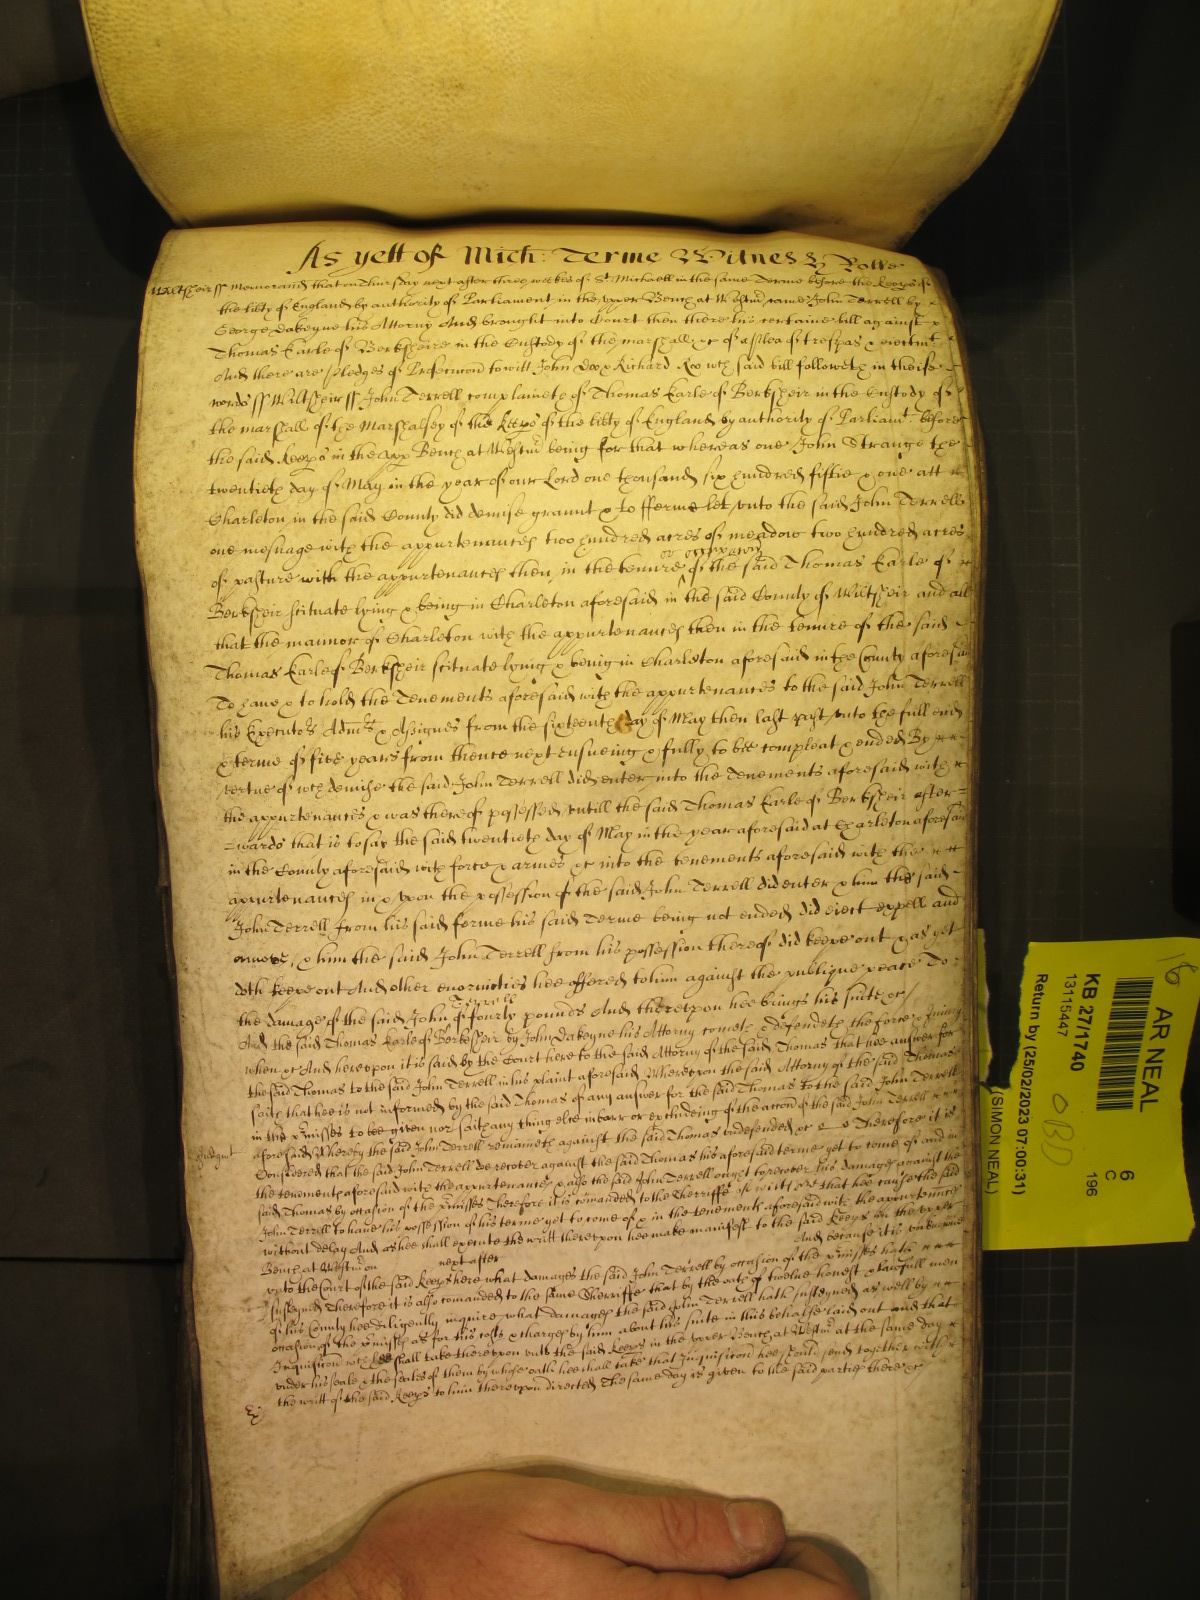 As yett of Mich: Terme Witnes Rolle
Wiltsheir ss Memorand that on Thursday next after three weekes of St Michaell in the same Terme before the Keeps of
the libty of England by authority of Parliament in the upper Bench at Westm came John Terrell by
George Dakeyne his Attorny And brought into Court then there his certaine bill against
Thomas Earle of Berksheire in the Custody of the marshall &c of a plea of trespas & ejectmt
And there are pledges of Prosecucon to witt John Doo & Richard Roo wch said bill followeth in theise
words ss Wiltsheir ss John Terrell complaineth of Thomas Earle of Berksheir in the Custody of
the marshall of the Marshalsey of the Keeps of the libty of England by authority of Parliamt before
the said Keeps in the upp Bench at Westm being for that whereas one John Strange the
twentieth day of May in the year of our Lord one thousand six hundred fiftie & one att
Charleton in the said County did demise graunt & to fferme let unto the said John Terrell
one mesuage with the appurtenances two hundred acres of meadow two hundred acres
of pasture with the appurtenances then in the tenure or occupacon of the said Thomas Earle of
Berksheir scituate lying & being in Charleton aforesaid in the said County of Wiltsheir and all
that the mannor of Charleton with the appurtenances then in the tenure of the said
Thomas Earle of Berksheir scituate lying & being in Charleton aforesaid in the County aforesaid
To have & to hold the Tenements aforesaid with the appurtenances to the said John Terrell
his Executors Admrs & Assignes from the sixteenth day of May then last past unto the full end
& terme of five years from thence next ensueing & fully to bee compleat & ended By
vertue of wch demise the said John Terrell did enter into the Tenements aforesaid with
the appurtenances & was thereof possessed untill the said Thomas Earle of Berksheir after-
-wards that is to say the said twentieth day of May in the year aforesaid at Charleton aforesaid
in the County aforesaid with force & armes &c into the tenements aforesaid with the
appurtenances in & upon the possession of the said John Terrell did enter & him the said
John Terrell from his said ferme his said Terme being not ended did eject expell and
amove & him the said John Terrell from his possession thereof did keepe out & as yet
doth keepe out And other enormities hee offered to him against the publique peace To
the damage of the said John Terrell of fourty pounds And thereupon hee brings his suite &c
And the said Thomas Earle of Berksheir by John Dakeyne his Attorny cometh & defendeth the force & Iniury
when &c And hereupon it is said by the Court here to the said Attorny of the said Thomas that hee answer for
the said Thomas to the said John Terrell in his plaint aforesaid Whereupon the said Attorny of the said Thomas
saith that hee is not informed by the said Thomas of any answer for the said Thomas to the said John Terrell
in the pmisses to bee given nor saith any thing else in barr or excludeing of the accon of the said John Terrell
Judgmt aforesaid Whereby the said John Terrell remaineth against the said Thomas undefended &c Therefore it is
Considered that the said John Terrell do recover against the said Thomas his aforesaid terme yet to come of and in
the tenements aforesaid with the appurtenances & also the said John Terrell ought to recover his damages against the
said Thomas by occasion of the pmisses Therefore it is comanded to the Sherriffe of Wiltsheire that hee cause the said
John Terrell to have his possession of his terme yet to come of & in the tenements aforesaid with the appurtenances
without delay And as hee shall execute the writt thereupon hee make manifest to the said Keeps in the upper
Bench at Westm on next after And because it is unknowne
unto the Court of the said Keeps here what damages the said John Terrell by occasion of the pmisses hath
susteyned Therefore it is also comanded to the same Sherriffe that by the oath of twelve honest & lawfull men
of his County hee diligently inquire what damages the said John Terrell hath susteyned as well by
occasion of the pmisses as for his costs & charges by him about his suite in this behalfe laid out And that
Inquisicon wch hee shall take thereupon unto the said Keeps in the upper Bench at Westm at the same day
under his seale & the seales of them by whose oath hee shall take that Inquisicon hee should send together with
the writt of the said Keeps to him thereupon directed The same day is given to the said parties there &c
16
AR NEAL
KB 27/1740
13115447
Return by (25/02/2023 07:00:31)
(SIMON NEAL)
6
C
196
OBD